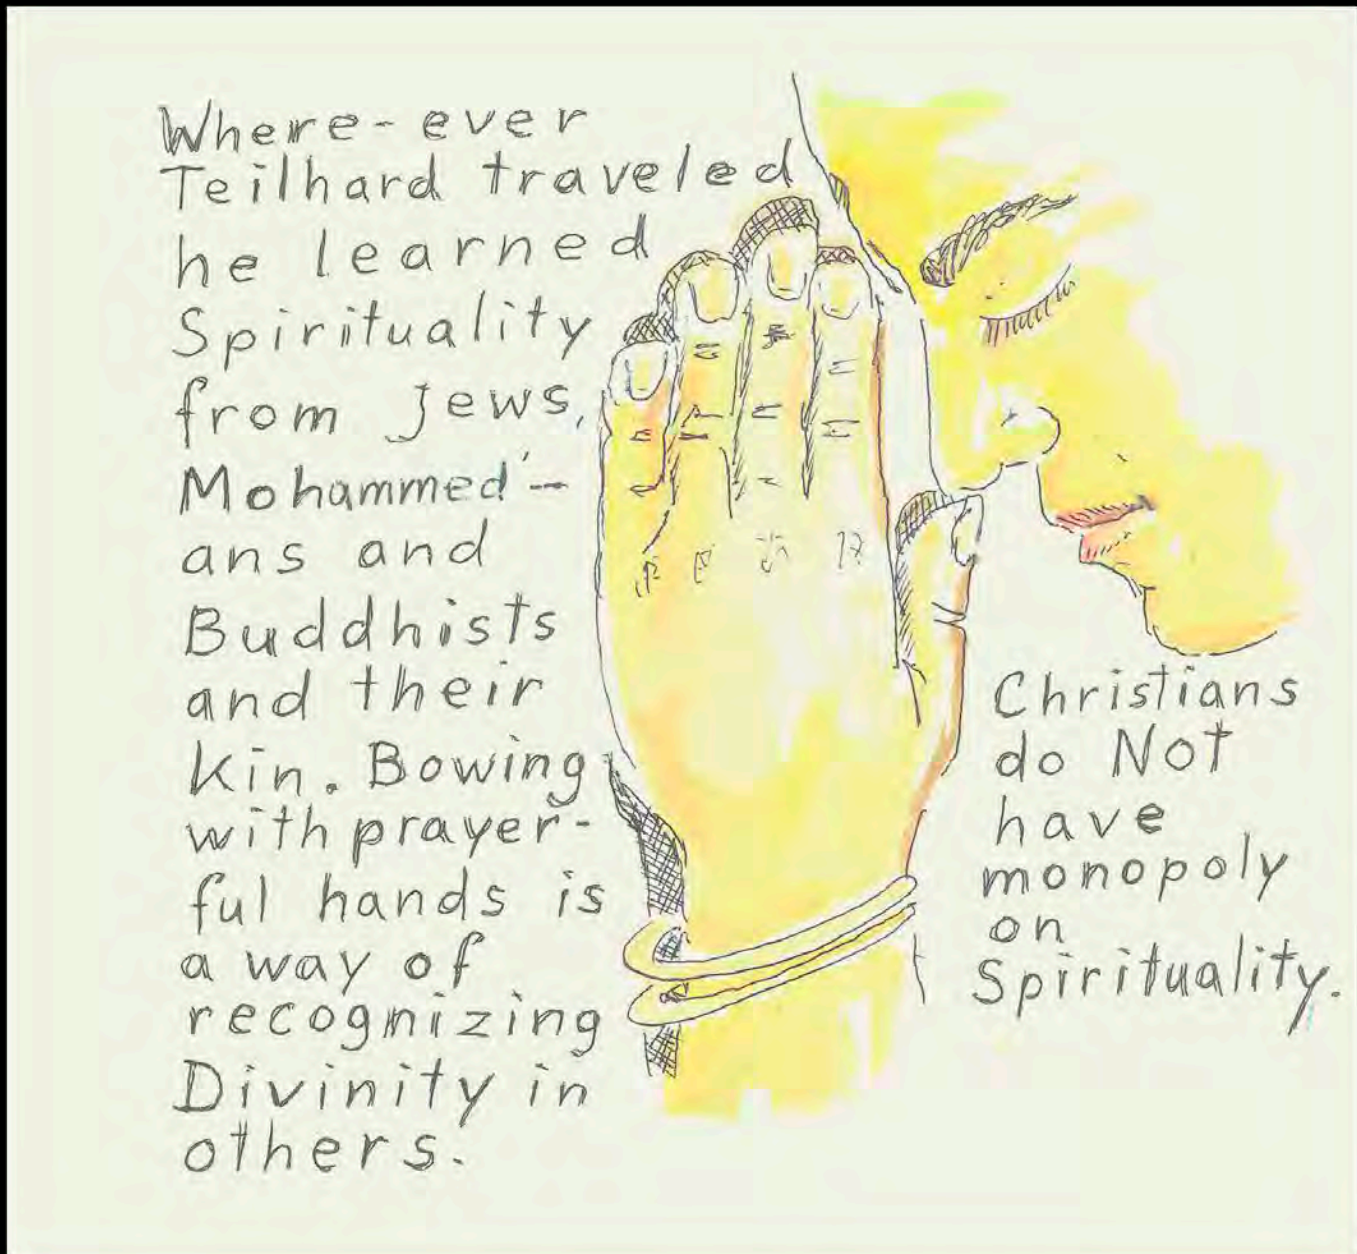 Where-ever
Teilhard traveled
he learned
Spirituality
from Jews,
Mohammed'-
ans and
Buddhists
and their
kin. Bowing
with prayer-
ful hands is
a way of
recognizing
Divinity in
others.
Christians
do Not
have
monopoly
on
Spirituality.